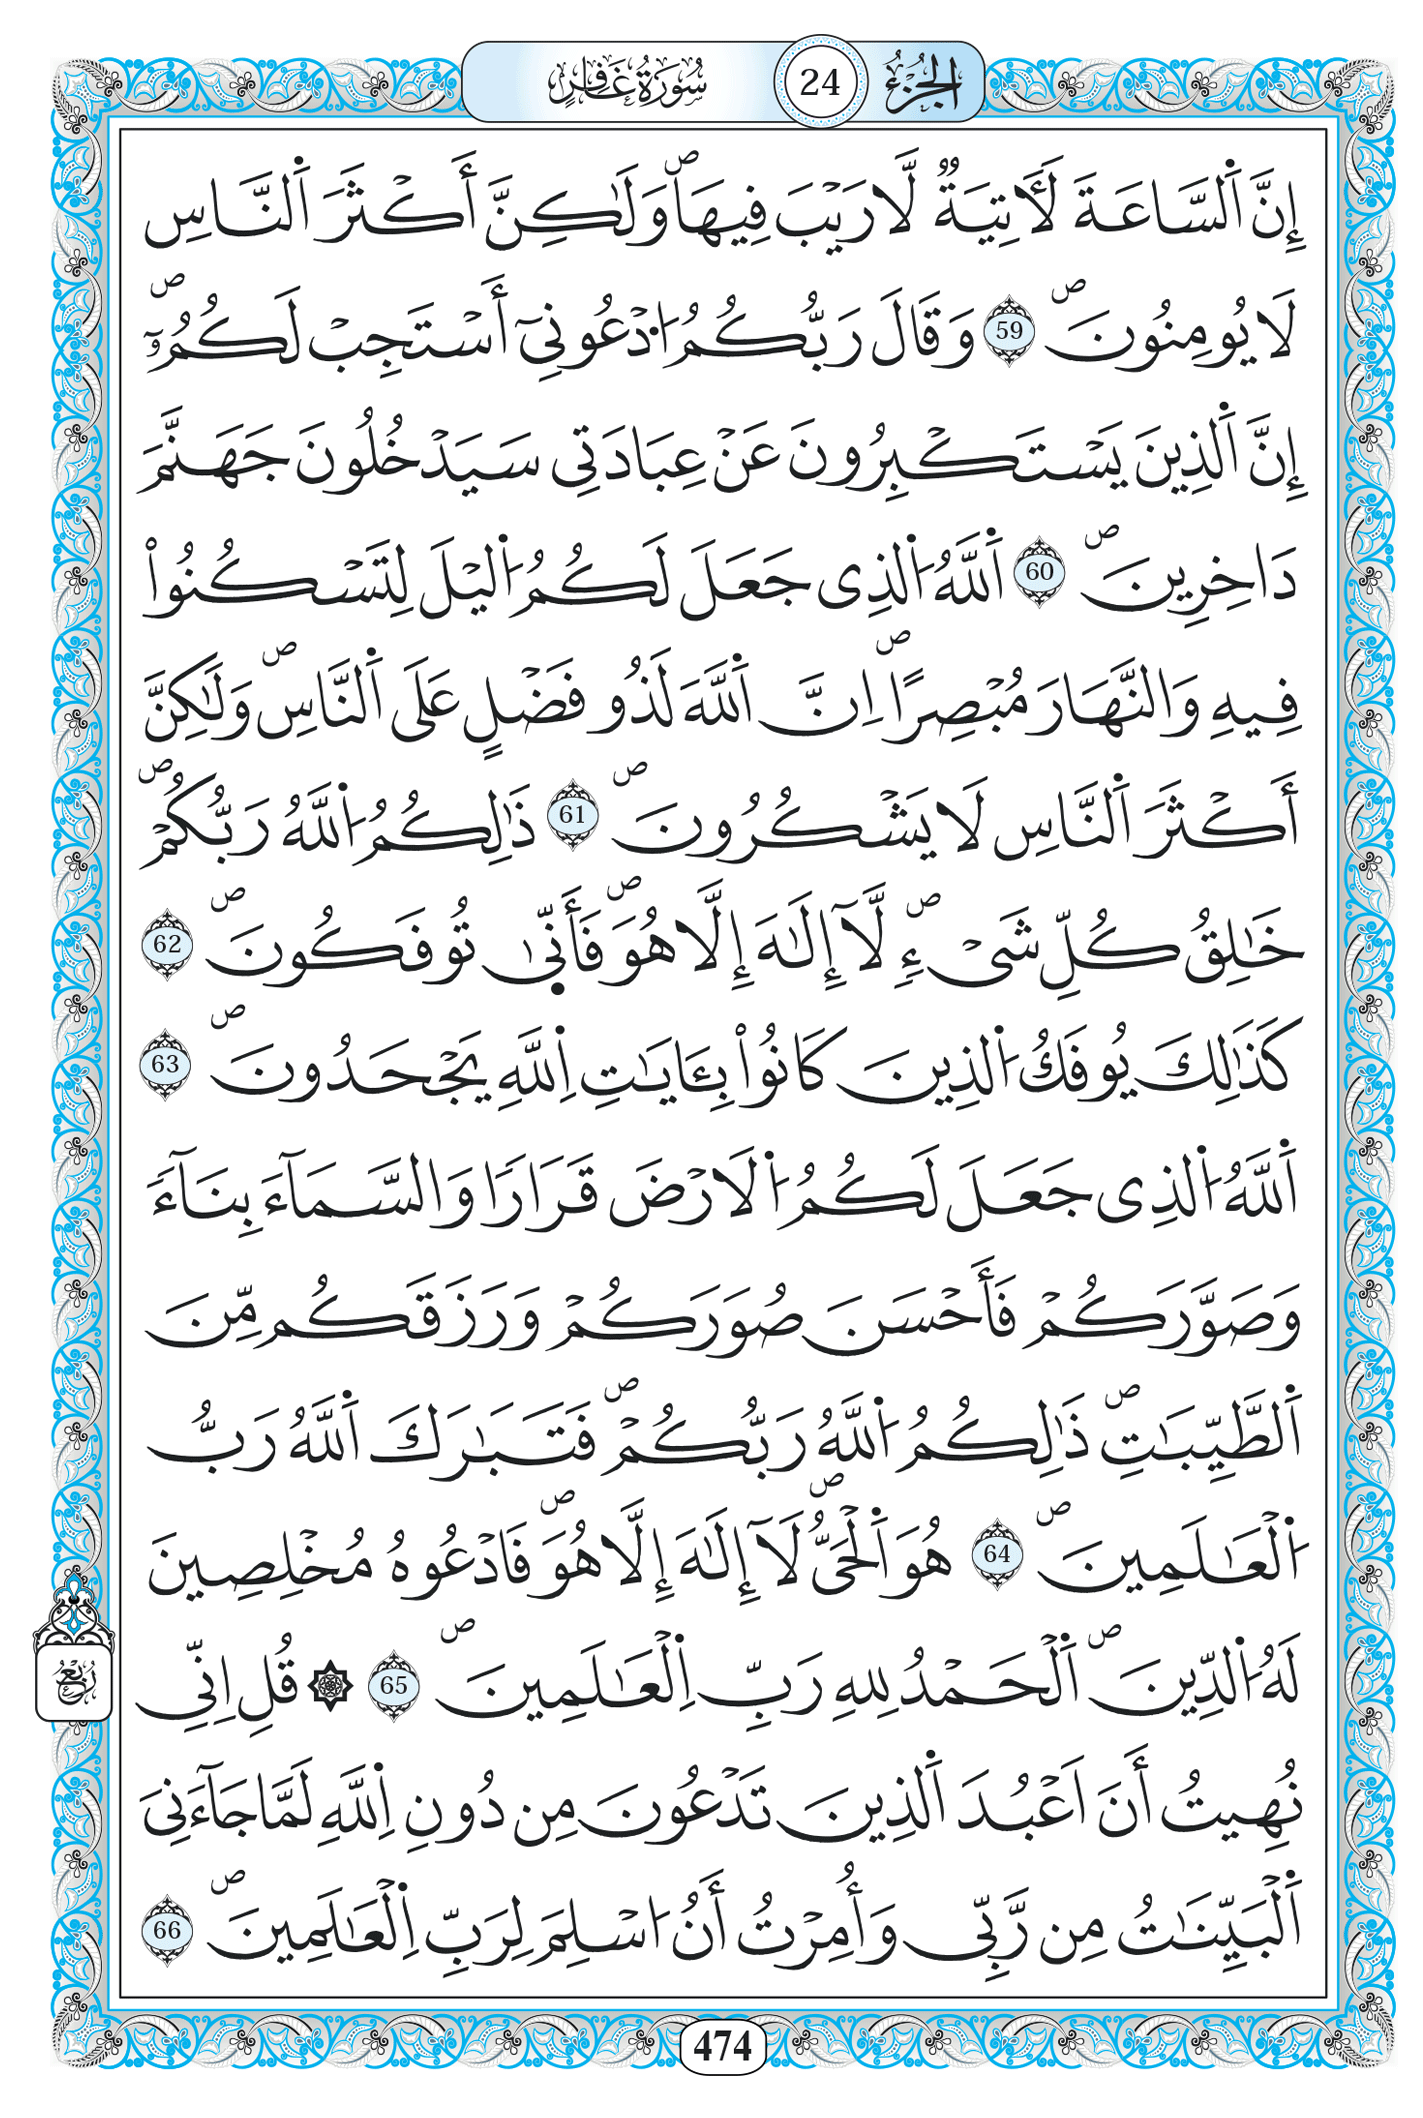 الجزء 24 سورة غافر
إِنَّ اَ۬لسَّاعَةَ لَأٓتِيَةٞ لَّا رَيْبَ فِيهَاۖ وَلَٰكِنَّ أَكْثَرَ اَ۬لنَّاسِ
لَا يُومِنُونَۖ 59 وَقَالَ رَبُّكُمُ اُ۟دْعُونِےٓ أَسْتَجِبْ لَكُمُۥٓۖ
إِنَّ اَ۬لذِينَ يَسْتَكْبِرُونَ عَنْ عِبَادَتِے سَيَدْخُلُونَ جَهَنَّمَ
دَاخِرِينَۖ 60 اَ۬للَّهُ اُ۬لذِے جَعَلَ لَكُمُ اُ۬ليْلَ لِتَسْكُنُواْ
فِيهِ وَالنَّهَارَ مُبْصِراًۖ اِنَّ اَ۬للَّهَ لَذُو فَضْلٍ عَلَى اَ۬لنَّاسِۖ وَلَٰكِنَّ
أَكْثَرَ اَ۬لنَّاسِ لَا يَشْكُرُونَۖ 61 ذَٰلِكُمُ اُ۬للَّهُ رَبُّكُمْۖ
خَٰلِقُ كُلِّ شَےْءٖۖ لَّآ إِلَٰهَ إِلَّا هُوَۖ فَأَنّ۪ىٰ تُوفَكُونَۖ 62
كَذَٰلِكَ يُوفَكُ اُ۬لذِينَ كَانُواْ بِـَٔايَٰتِ اِ۬للَّهِ يَجْحَدُونَۖ 63
اَ۬للَّهُ اُ۬لذِے جَعَلَ لَكُمُ اُ۬لَارْضَ قَرَاراٗ وَالسَّمَآءَ بِنَآءٗ
وَصَوَّرَكُمْ فَأَحْسَنَ صُوَرَكُمْ وَرَزَقَكُم مِّنَ
اَ۬لطَّيِّبَٰتِۖ ذَٰلِكُمُ اُ۬للَّهُ رَبُّكُمْۖ فَتَبَٰرَكَ اَ۬للَّهُ رَبُّ
اُ۬لْعَٰلَمِينَۖ 64 هُوَ اَ۬لْحَيُّۖ لَآ إِلَٰهَ إِلَّا هُوَۖ فَادْعُوهُ مُخْلِصِينَ
لَهُ اُ۬لدِّينَۖ اَ۬لْحَمْدُ لِلهِ رَبِّ اِ۬لْعَٰلَمِينَۖ 65 ۞ قُلِ اِنِّے
نُهِيتُ أَنَ اَعْبُدَ اَ۬لذِينَ تَدْعُونَ مِن دُونِ اِ۬للَّهِ لَمَّا جَآءَنِيَ
اَ۬لْبَيِّنَٰتُ مِن رَّبِّے وَأُمِرْتُ أَنُ اُسْلِمَ لِرَبِّ اِ۬لْعَٰلَمِينَۖ 66
رُبُعٌ
474